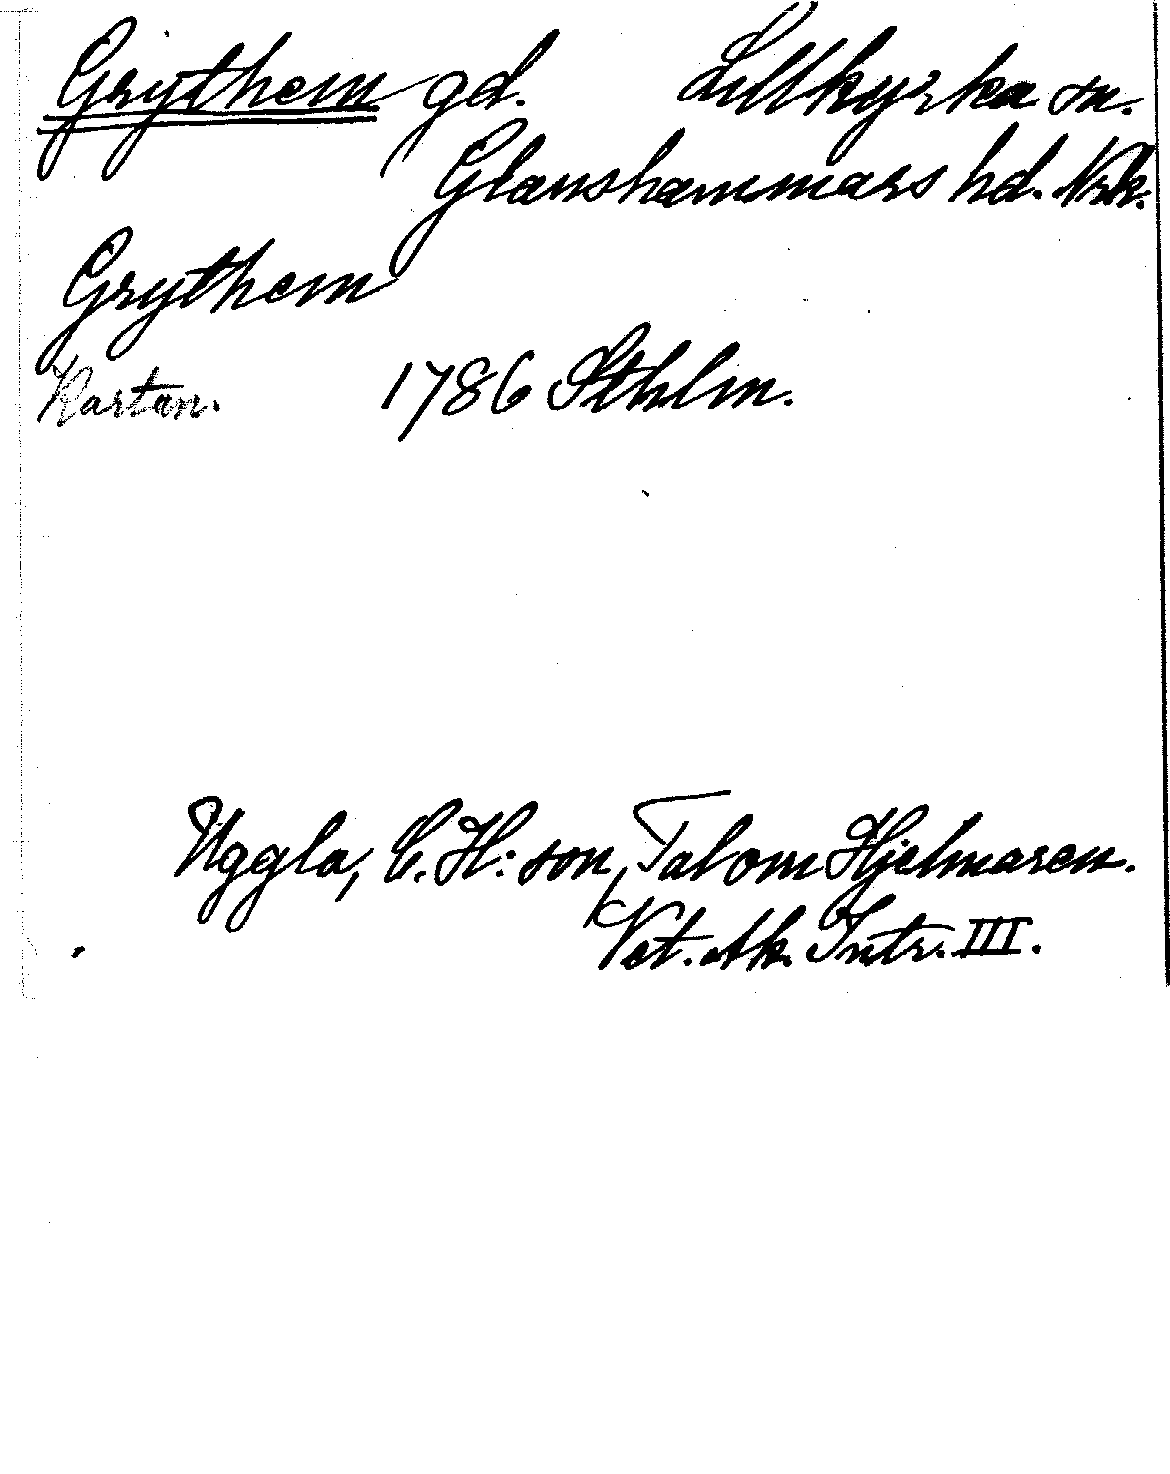 Grythem gd. Lillkyrka sn.
Glanshammars hd. Nrk.
Grythem
Kartan. 1786 Sthlm.
Uggla, C. H:son, Tal om Hjelmaren.
Vet. Ak. Intr. III.